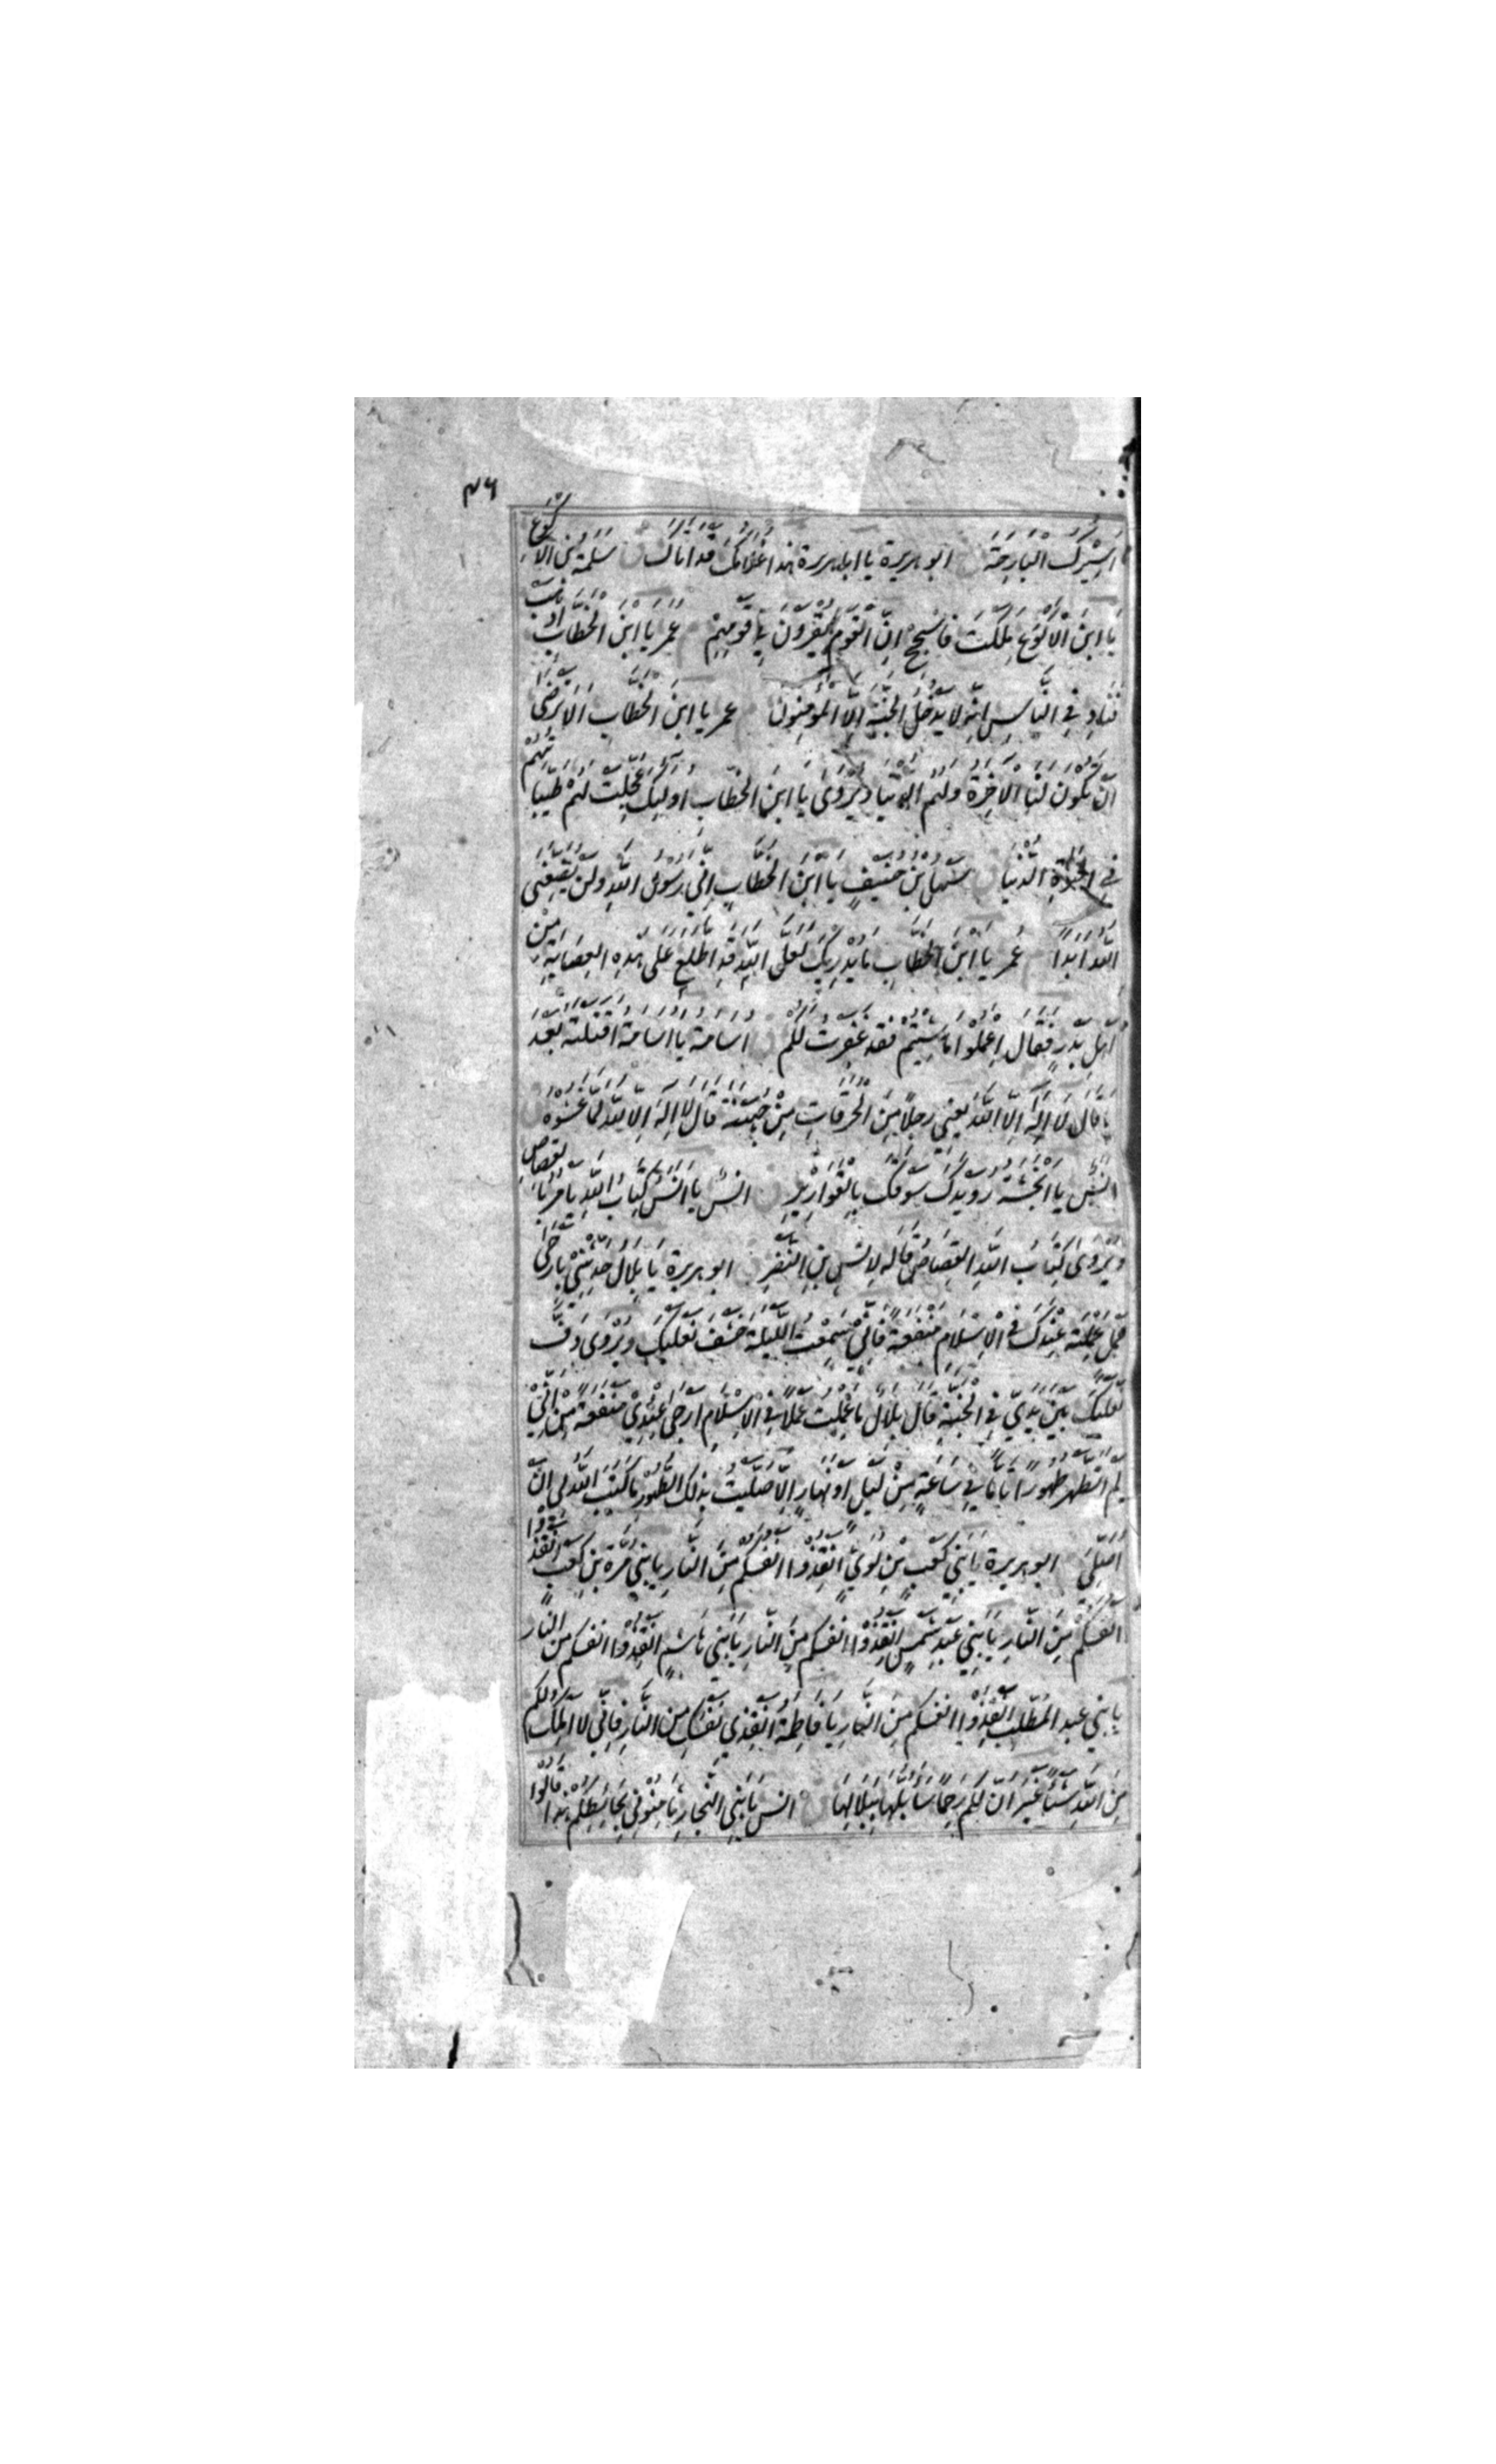 ٤٦
اَسِيْرُكَ الْبَارِحَةَ ابو هريرة يا ابا هريرة هذا غُلَامُكَ قد اتاك سلمة بن الاكوع
يَا ابنَ الْاَكْوَعِ مَلَكْتَ فَاَسْجِحْ اِنَّ الْقَوْمَ يُقْرَوْنَ فِي قَوْمِهِمْ عُمر يَا ابْنَ الْخَطَّابِ اذهب
فَنَادِ فِي النَّاسِ اِنَّهُ لا يَدْخُلُ الْجَنَّةَ اِلَّا الْمُؤْمِنُونَ عمر يا ابنَ الْخَطَّابِ اَلَا تَرْضٰى
اَنْ تَكُوْنَ لَنَا الْاٰخِرَةُ وَلَهُمُ الدُّنْيَا وَيُرْوٰى يَا ابنَ الْخَطَّابِ اُولٰئِكَ عُجِّلَتْ لَهُمْ طَيِّبَاتُهُمْ
فِي الْحَيٰوةِ الدُّنْيَا سَهْلُ بْنُ حُنَيْفٍ يَا ابْنَ الْخَطَّابِ اِنِّي رَسُوْلُ اللّٰهِ وَلَنْ يُضَيِّعَنِي
اللّٰهُ اَبَدًا عُمر يَا ابْنَ الْخَطَّابِ مَا يُدْرِيْكَ لَعَلَّ اللّٰهَ قَدِ اطَّلَعَ عَلٰى هٰذِهِ الْعِصَابَةِ مِنْ
اَهْلِ بَدْرٍ فَقَالَ اِعْمَلُوْا مَا شِئْتُمْ فَقَدْ غَفَرْتُ لَكُمْ اسامة يا اسامة اَقَتَلْتَهُ بَعْدَ
مَا قَالَ لَا اِلٰهَ اِلَّا اللّٰهُ يَعْنِي رَجُلًا مِنَ الْحُرَقَاتِ مِنْ جُهَيْنَةَ قَالَ لَا اِلٰهَ اِلَّا اللّٰهُ لَمَّا غَشُوْهُ
انس يَا اَنْجَشَةُ رُوَيْدَكَ سَوْقَكَ بِالْقَوَارِيْرِ انس يَا اَنَسُ كِتَابُ اللّٰهِ يَأْمُرُ بِالْقِصَاصِ
وَيُرْوٰى كِتَابُ اللّٰهِ الْقِصَاصُ قَالَهُ لِاَنَسِ بْنِ النَّضْرِ ابو هريرة يَا بِلَالُ حَدِّثْنِي بِاَرْجٰى
عَمَلٍ عَمِلْتَهُ عِنْدَكَ فِي الْاِسْلَامِ مَنْفَعَةً فَاِنِّي سَمِعْتُ اللَّيْلَةَ خَشَفَ نَعْلَيْكَ وَيُرْوٰى دَفَّ
نَعْلَيْكَ بَيْنَ يَدَيَّ فِي الْجَنَّةِ قَالَ بِلَالٌ مَا عَمِلْتُ عَمَلًا فِي الْاِسْلَامِ اَرْجٰى عِنْدِيْ مَنْفَعَةً مِنْ اَنِّيْ
لَمْ اَتَطَهَّرْ طُهُوْرًا تَامًّا فِي سَاعَةٍ مِنْ لَيْلٍ اَوْ نَهَارٍ اِلَّا صَلَّيْتُ بِذٰلِكَ الطُّهُوْرِ مَا كَتَبَ اللّٰهُ لِي اَنْ
اُصَلِّيَ ابو هريرة يَا بَنِي كَعْبِ بْنِ لُؤَيٍّ اَنْقِذُوْا اَنْفُسَكُمْ مِنَ النَّارِ يَا بَنِي مُرَّةَ بْنِ كَعْبٍ اَنْقِذُوْا
اَنْفُسَكُمْ مِنَ النَّارِ يَا بَنِي عَبْدِ شَمْسٍ اَنْقِذُوْا اَنْفُسَكُمْ مِنَ النَّارِ يَا بَنِي هَاشِمٍ اَنْقِذُوْا انفسكم من النار
يَا بَنِي عَبْدِ الْمُطَّلِبِ اَنْقِذُوْا انفسكم مِنَ النَّارِ يَا فَاطِمَةُ اَنْقِذِي نَفْسَكِ مِنَ النَّارِ فَاِنِّي لَا اَمْلِكُ لَكُمْ
مِنَ اللّٰهِ شَيْئًا غَيْرَ اَنَّ لَكُمْ رَحِمًا سَاَبُلُّهَا بِبَلَالِهَا انس يَا بَنِي النَّجَّارِ ثَامِنُوْنِي بِحَائِطِكُمْ هٰذَا قَالُوْا